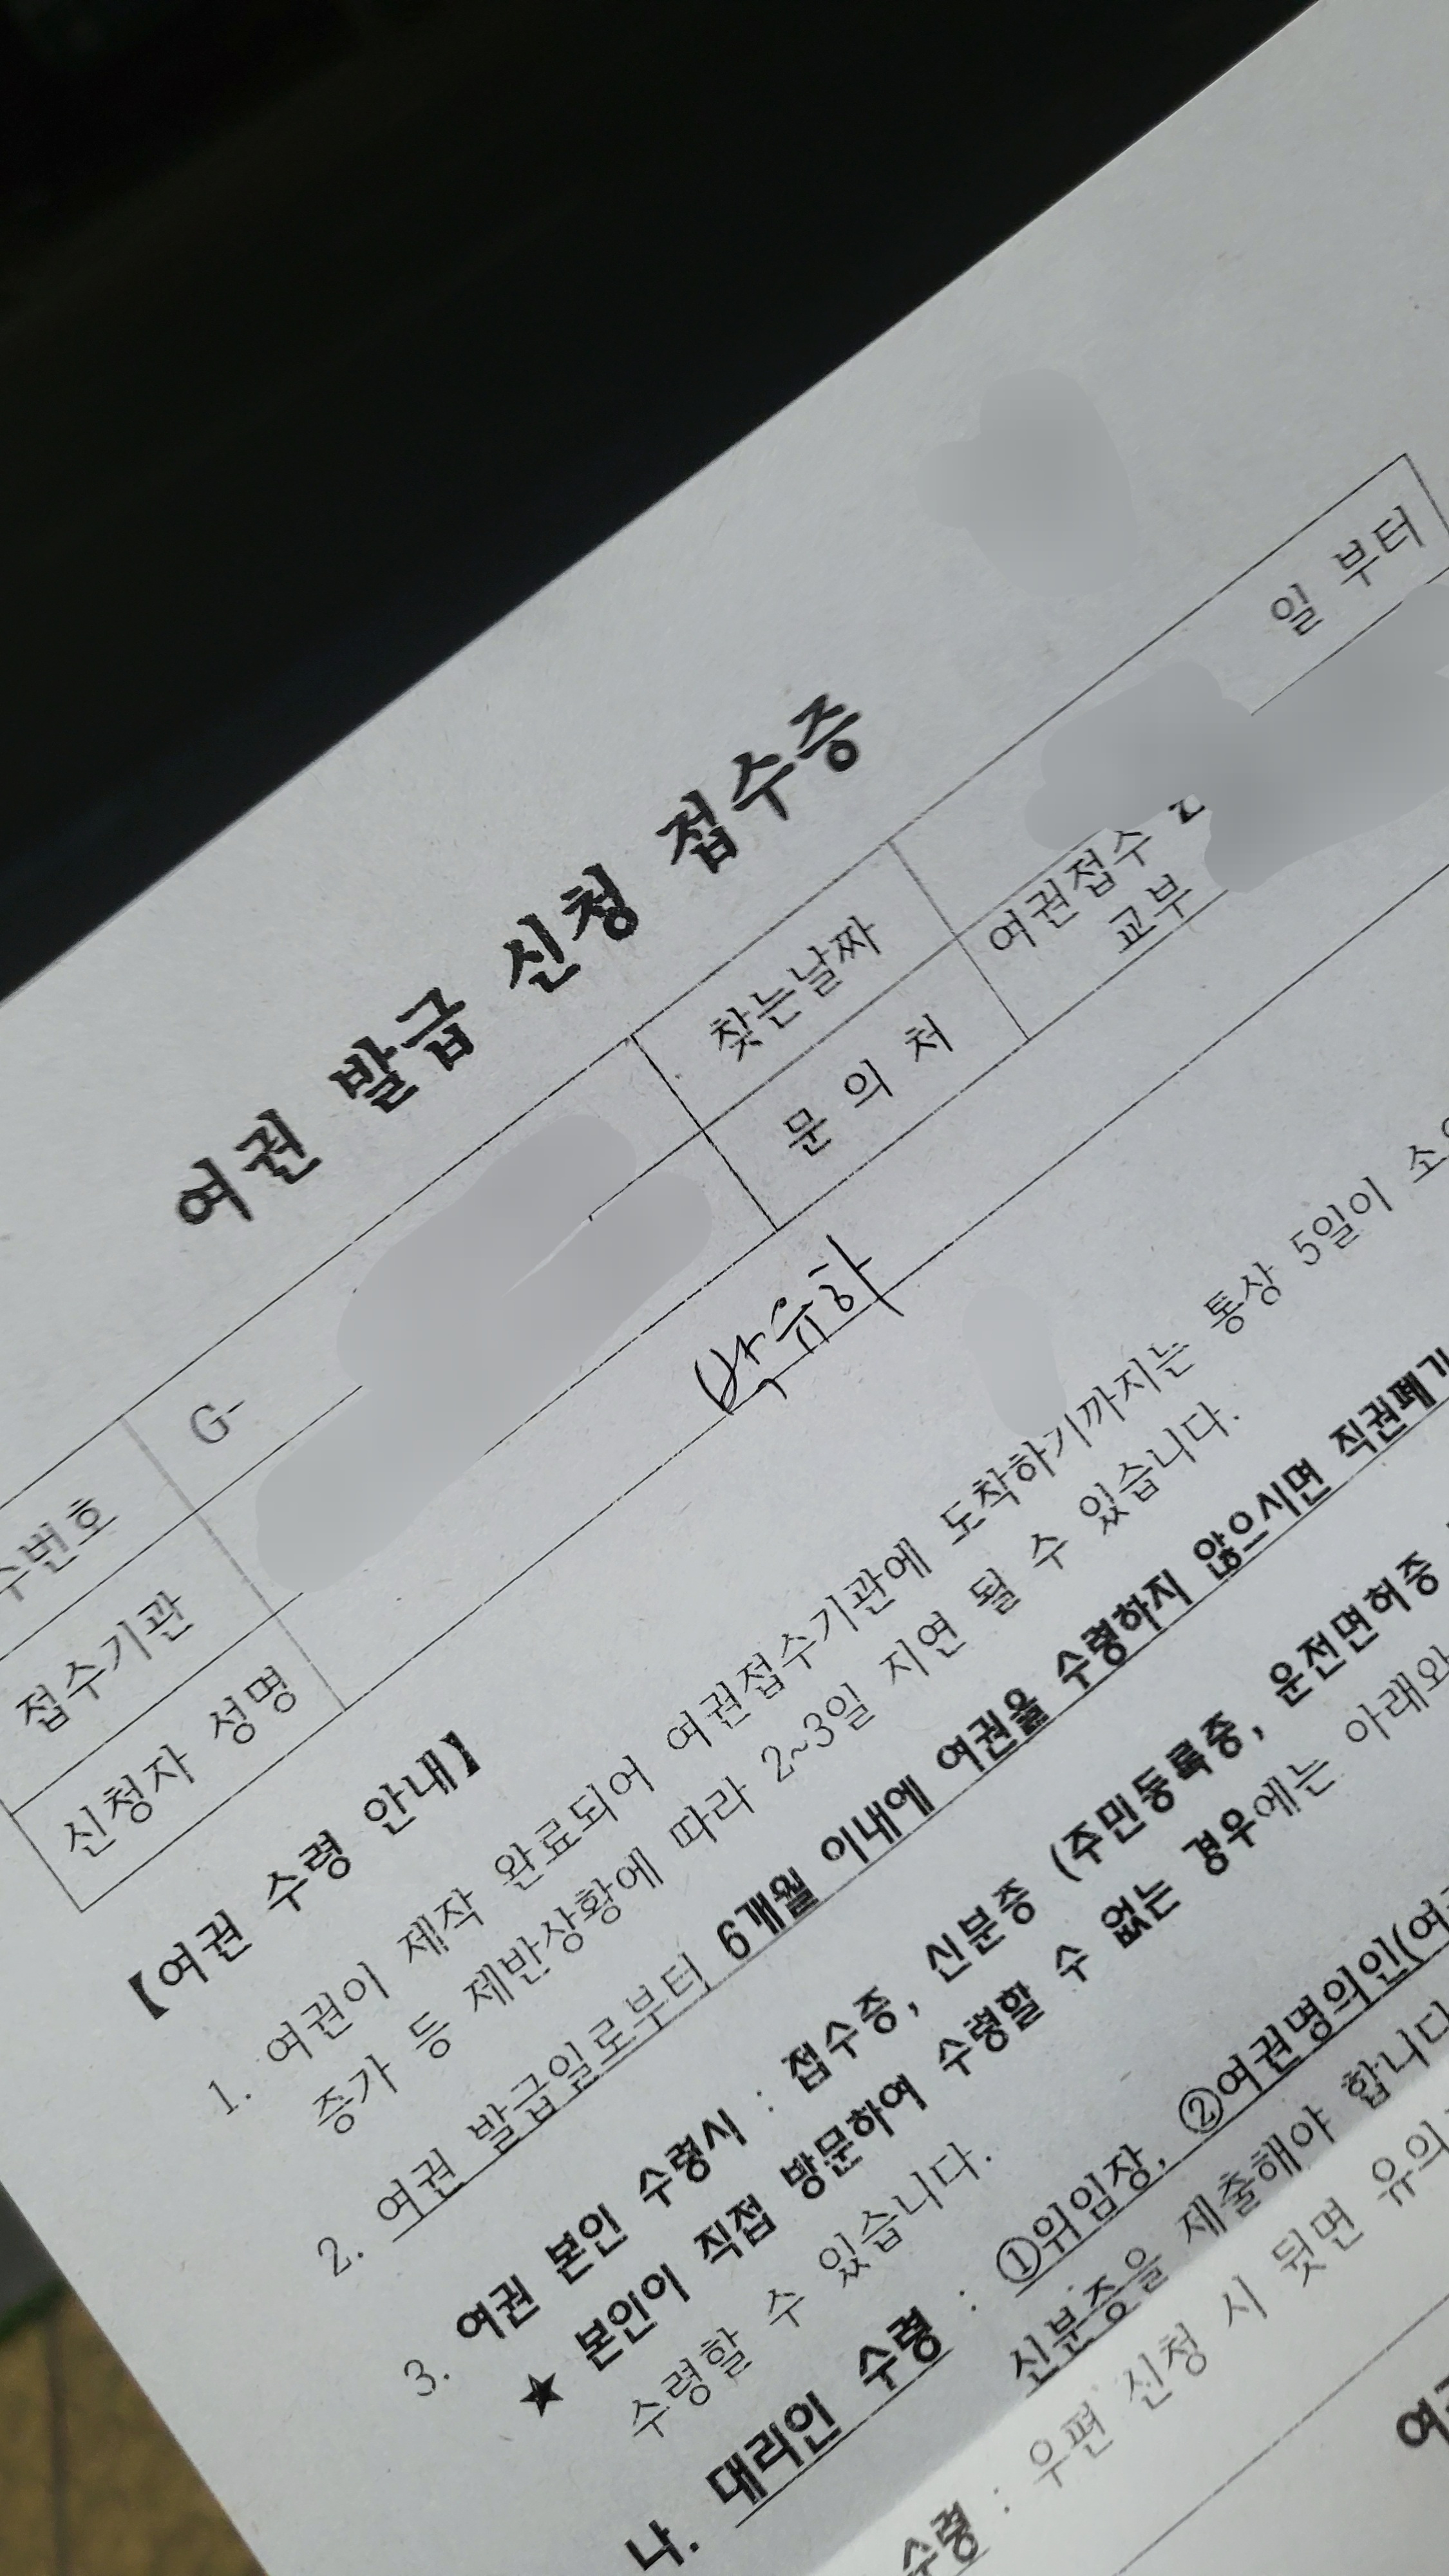 여권 발급 신청 접수증
수번호 G- 찾는날짜 일 부터
접수기관 문 의 처 여권접수 교부
신청자 성명 박유하
【여권 수령 안내】
1. 여권이 제작 완료되어 여권접수기관에 도착하기까지는 통상 5일이
증가 등 제반상황에 따라 2~3일 지연 될 수 있습니다.
2. 여권 발급일로부터 6개월 이내에 여권을 수령하지 않으시면 직권폐기
3. 여권 본인 수령시 : 접수증, 신분증 (주민등록증, 운전면허증
★ 본인이 직접 방문하여 수령할 수 없는 경우에는 아래와
수령할 수 있습니다.
나. 대리인 수령 : ①위임장, ②여권명의인(여
신분증을 제출해야 합니다
수령 : 우편 신청 시 뒷면 유의